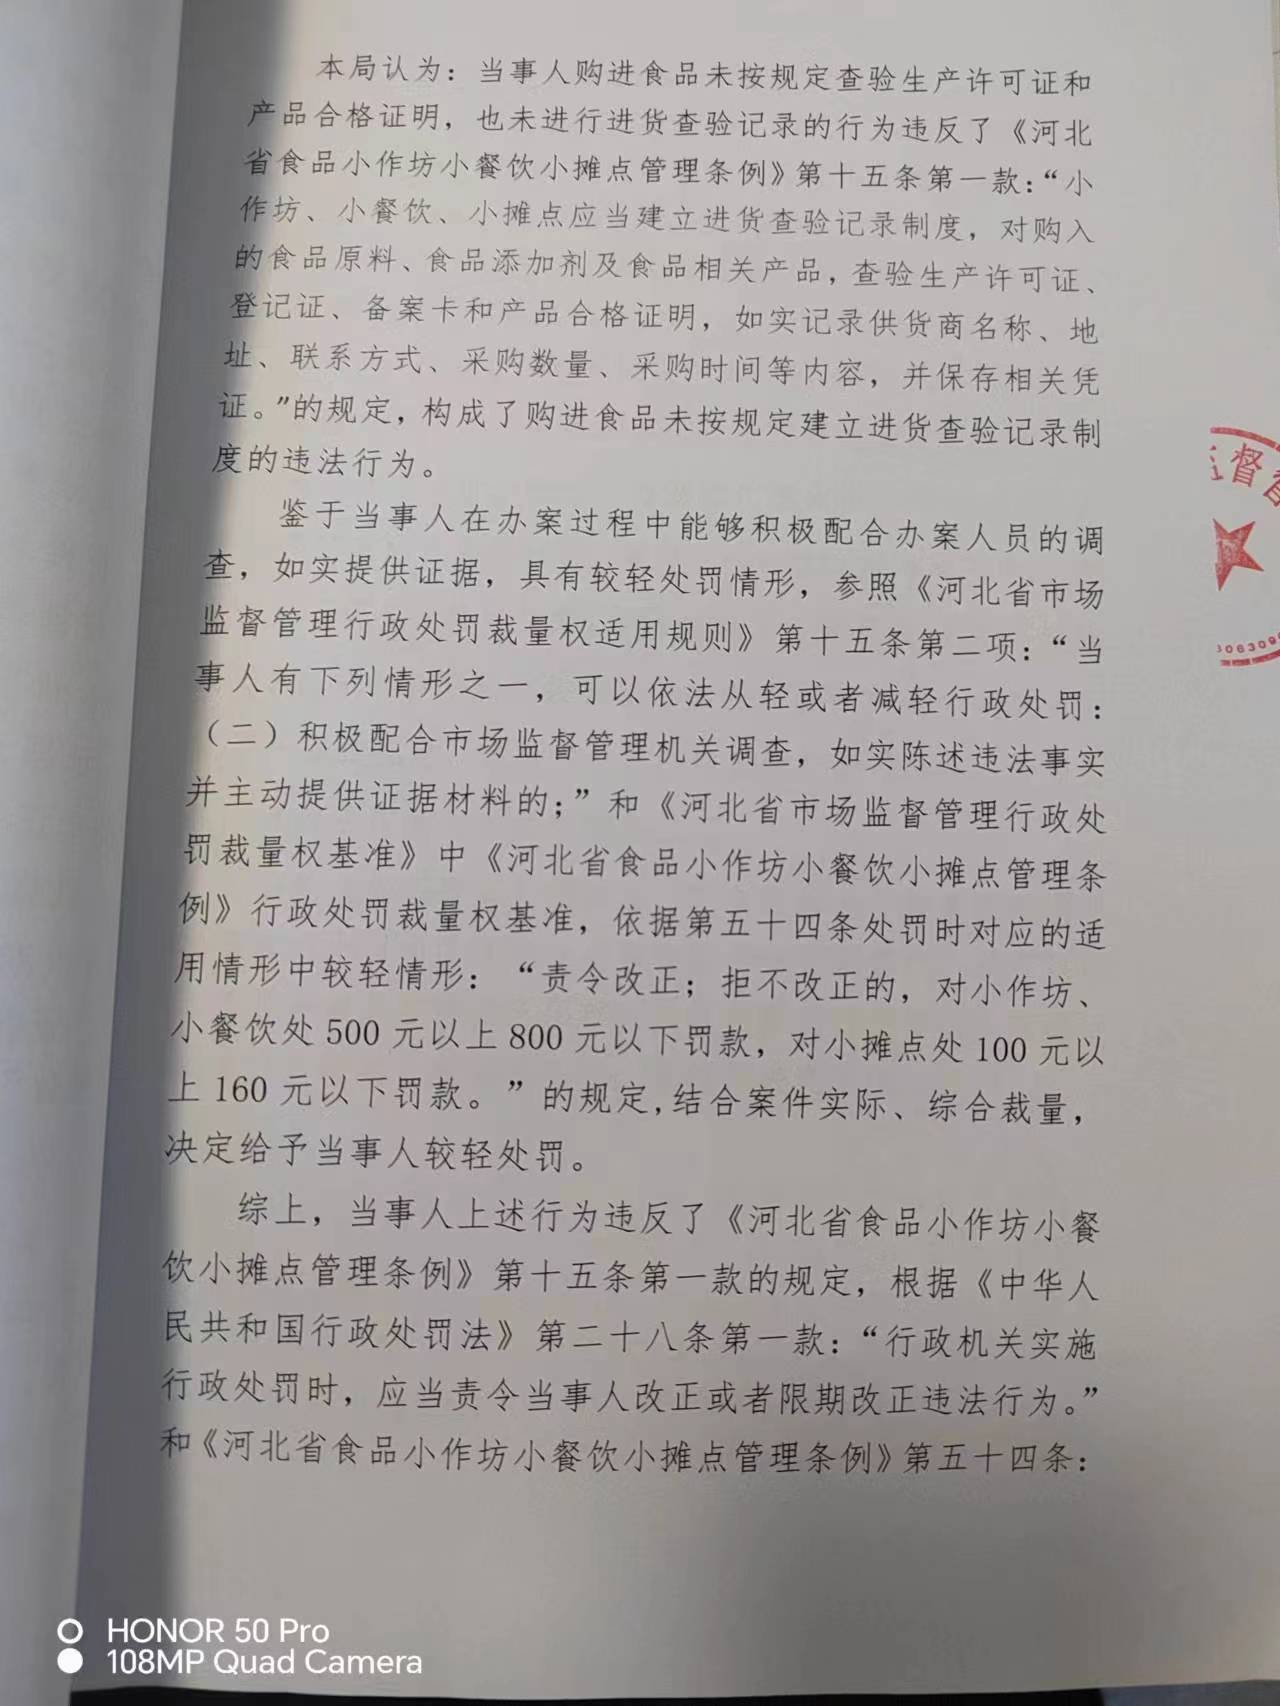 本局认为：当事人购进食品未按规定查验生产许可证和
产品合格证明，也未进行进货查验记录的行为违反了《河北
省食品小作坊小餐饮小摊点管理条例》第十五条第一款：“小
作坊、小餐饮、小摊点应当建立进货查验记录制度，对购入
的食品原料、食品添加剂及食品相关产品，查验生产许可证、
登记证、备案卡和产品合格证明，如实记录供货商名称、地
址、联系方式、采购数量、采购时间等内容，并保存相关凭
证。”的规定，构成了购进食品未按规定建立进货查验记录制
度的违法行为。
鉴于当事人在办案过程中能够积极配合办案人员的调
查，如实提供证据，具有较轻处罚情形，参照《河北省市场
监督管理行政处罚裁量权适用规则》第十五条第二项：“当
事人有下列情形之一，可以依法从轻或者减轻行政处罚：
（二）积极配合市场监督管理机关调查，如实陈述违法事实
并主动提供证据材料的；”和《河北省市场监督管理行政处
罚裁量权基准》中《河北省食品小作坊小餐饮小摊点管理条
例》行政处罚裁量权基准，依据第五十四条处罚时对应的适
用情形中较轻情形：“责令改正；拒不改正的，对小作坊、
小餐饮处500元以上800元以下罚款，对小摊点处100元以
上160元以下罚款。”的规定,结合案件实际、综合裁量，
决定给予当事人较轻处罚。
综上，当事人上述行为违反了《河北省食品小作坊小餐
饮小摊点管理条例》第十五条第一款的规定，根据《中华人
民共和国行政处罚法》第二十八条第一款：“行政机关实施
行政处罚时，应当责令当事人改正或者限期改正违法行为。”
和《河北省食品小作坊小餐饮小摊点管理条例》第五十四条：
督
HONOR 50 Pro
108MP Quad Camera